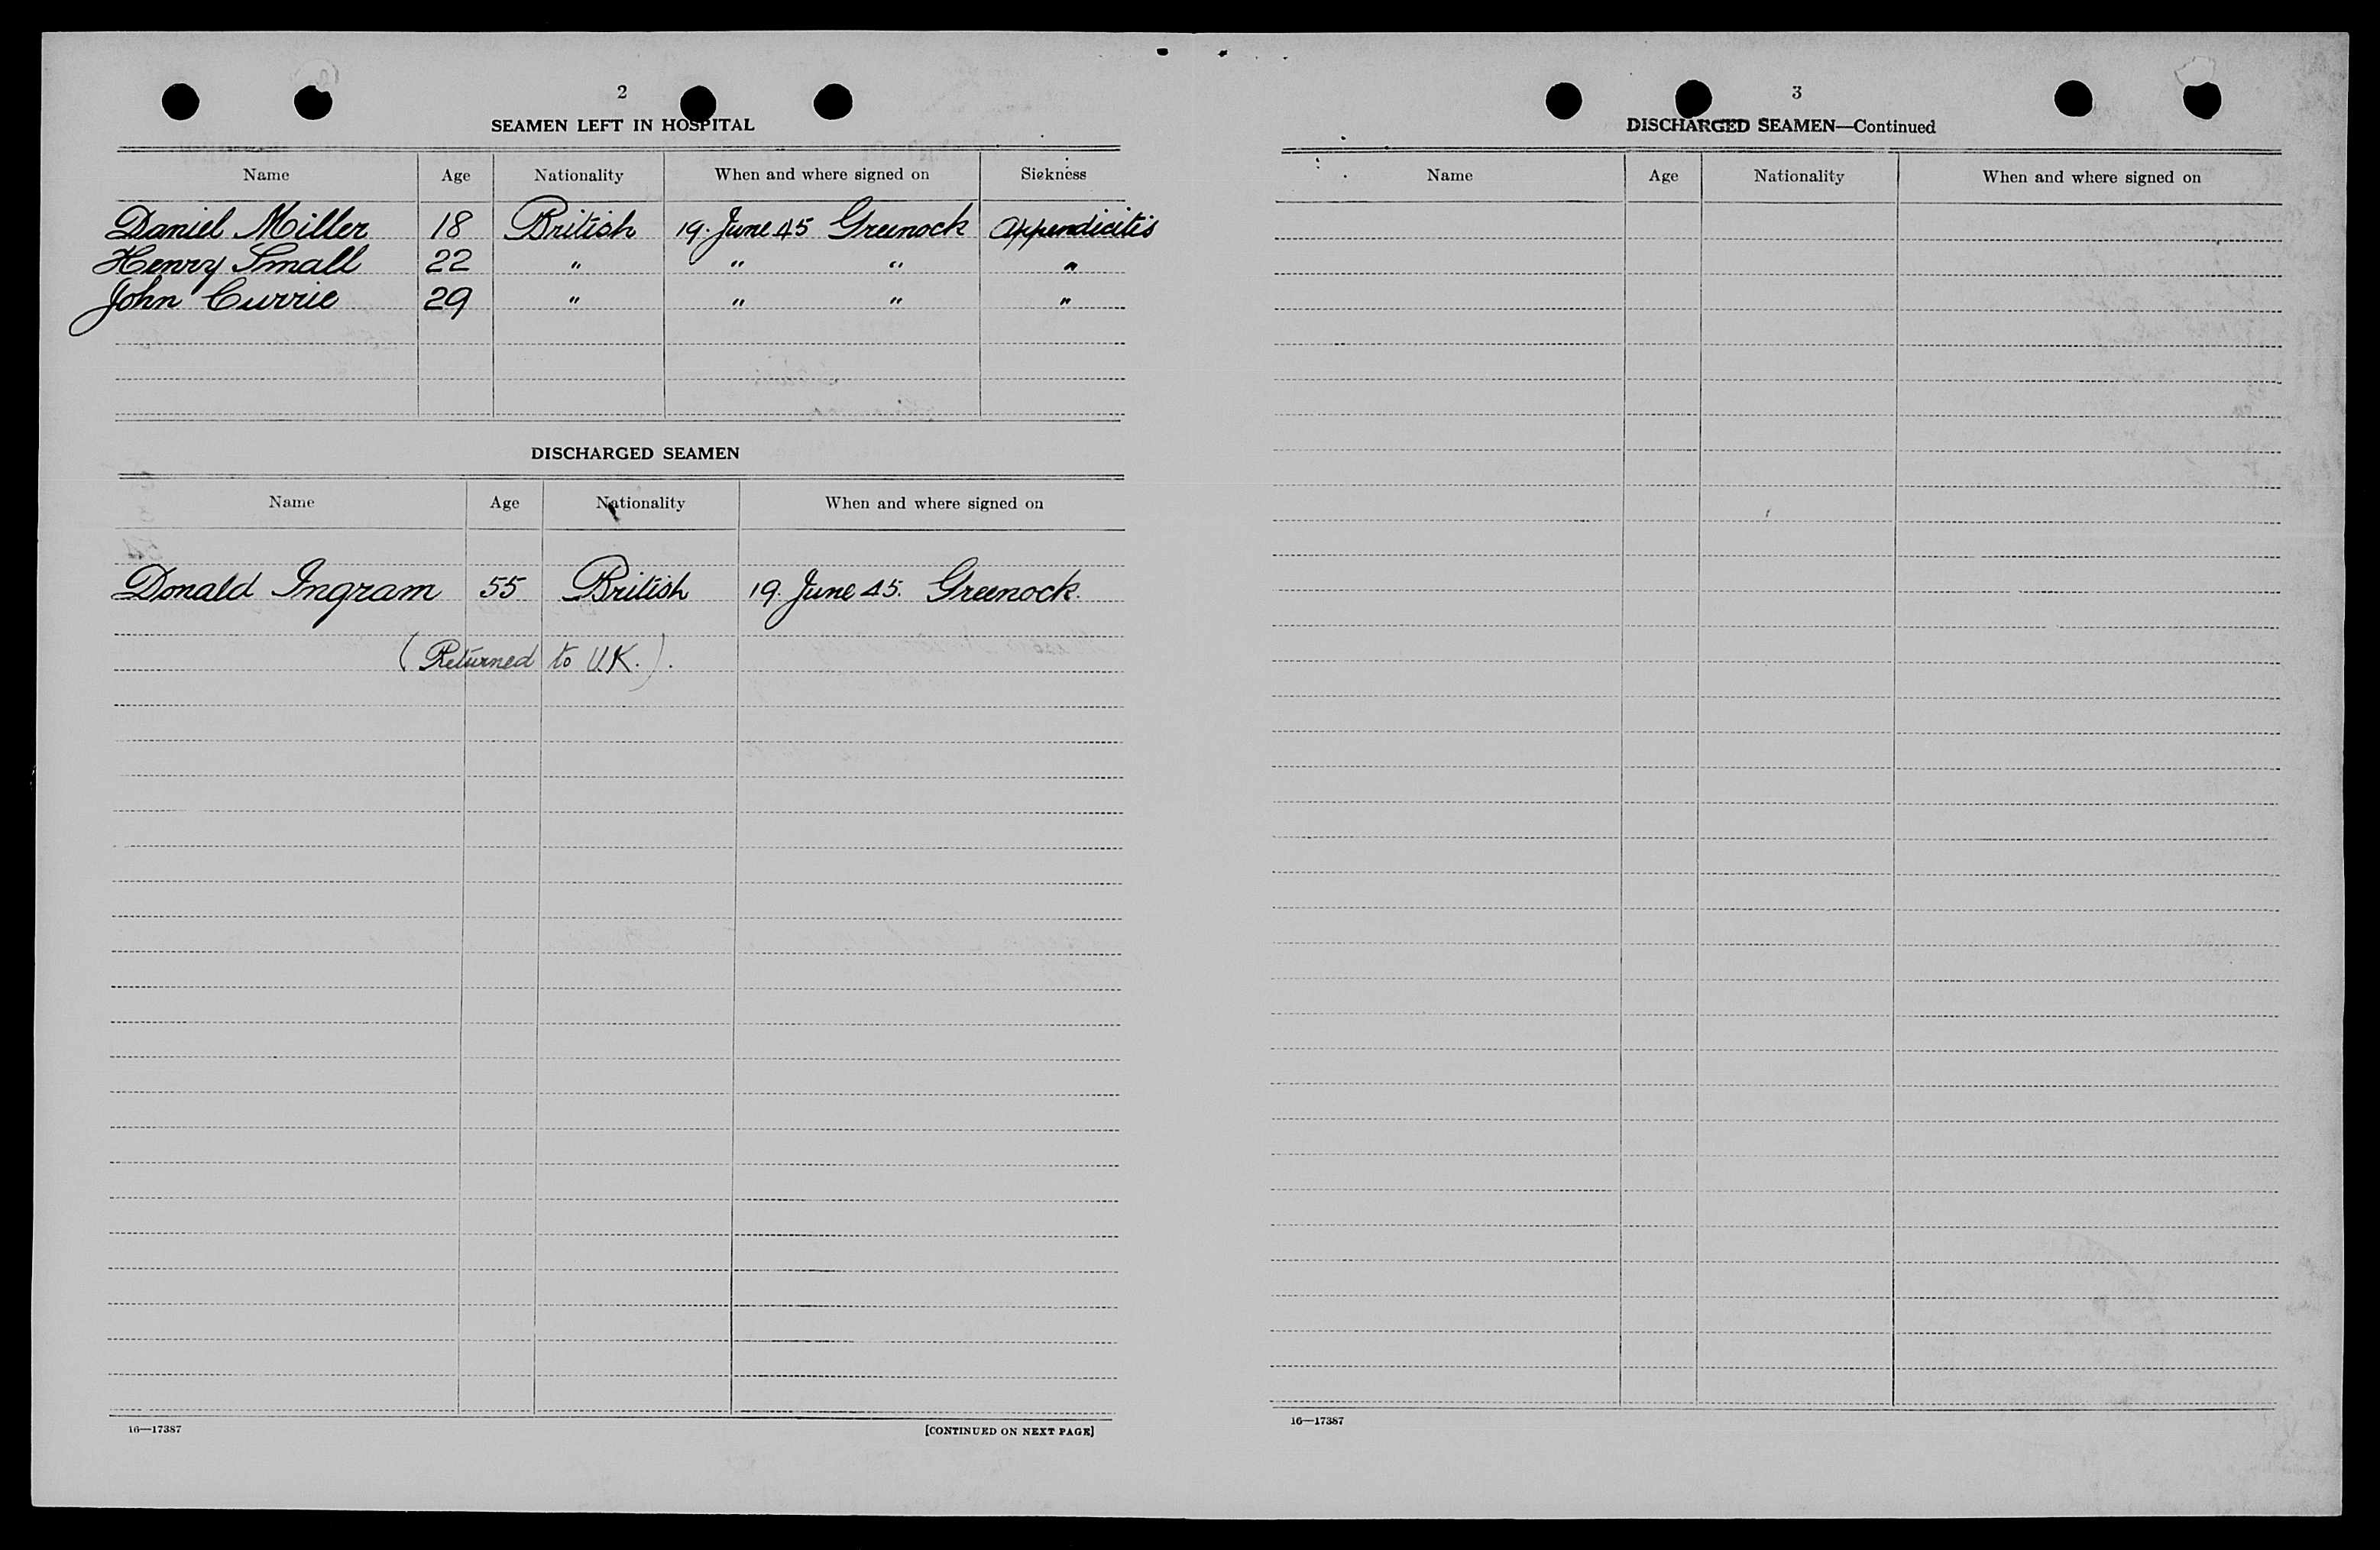 2
SEAMEN LEFT IN HOSPITAL
Name Age Nationality When and where signed on Sickness
Daniel Miller 18 British 19. June 45 Greenock Appendicitis
Henry Small 22 " " " "
John Currie 29 " " " "
DISCHARGED SEAMEN
Name Age Nationality When and where signed on
Donald Ingram 55 British 19. June 45. Greenock.
(Returned to U.K.).
16—17387 [CONTINUED ON NEXT PAGE]
3
DISCHARGED SEAMEN—Continued
Name Age Nationality When and where signed on
16—17387